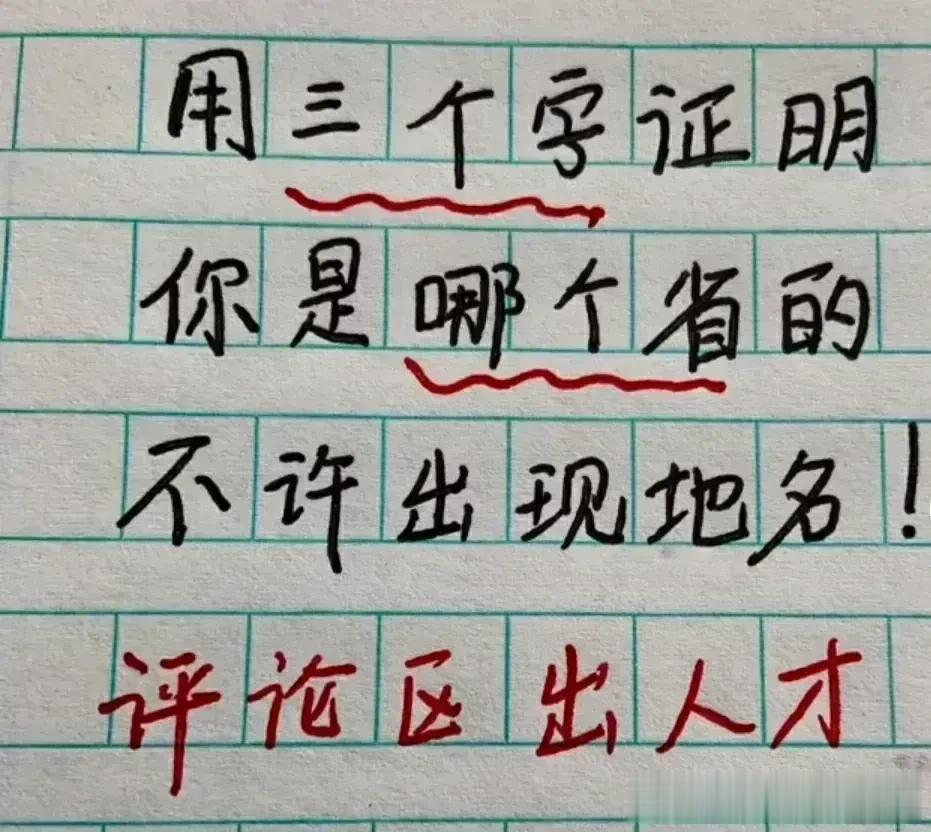 用三个字证明
你是哪个省的
不许出现地名！
评论区出人才